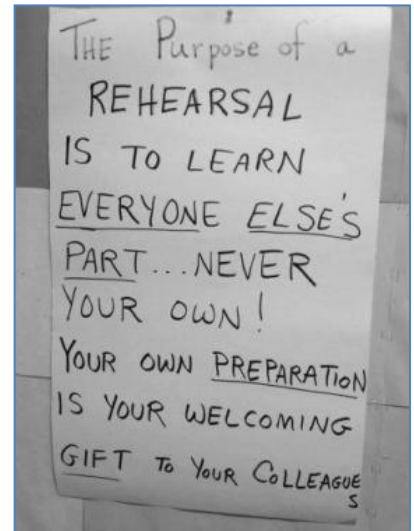 THE Purpose of a
REHEARSAL
IS TO LEARN
EVERYONE ELSE'S
PART...NEVER
YOUR OWN!
YOUR OWN PREPARATION
IS YOUR WELCOMING
GIFT TO YOUR COLLEAGUE
S